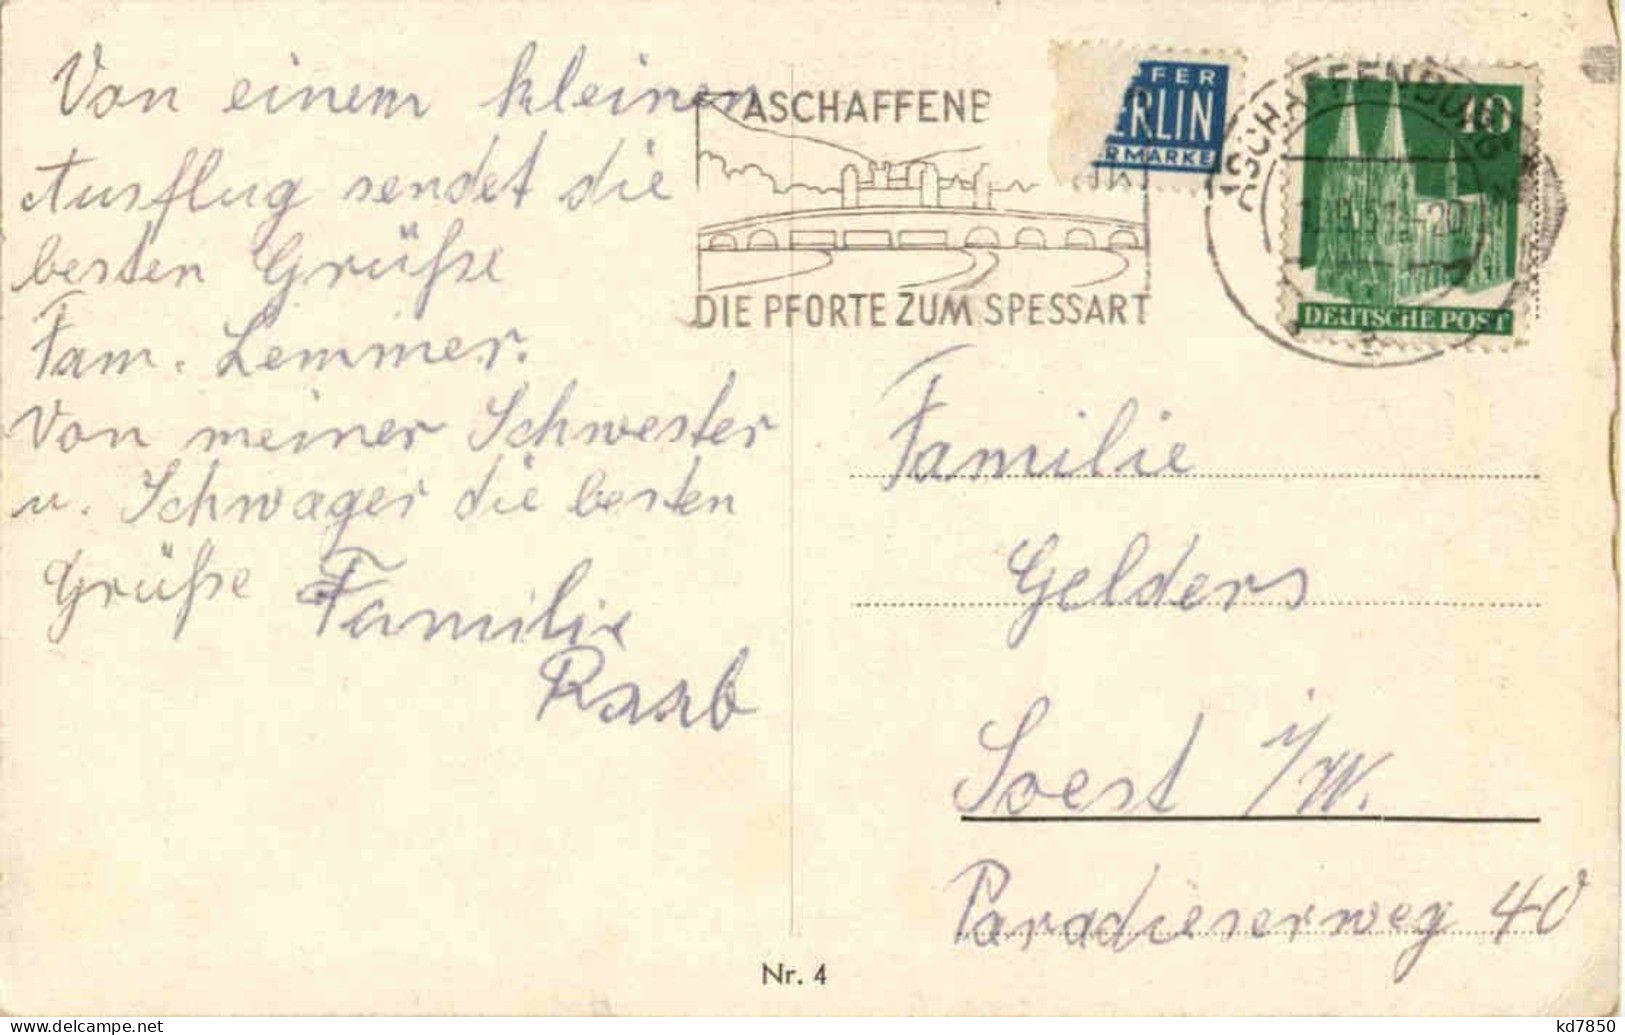 Von einem kleinen
Ausflug sendet die
besten Grüße
Fam. Lemmer.
Von meiner Schwester
u. Schwager die besten
Grüße Familie
Raab
ASCHAFFENB
DIE PFORTE ZUM SPESSART
FER
ERLIN
RMARKE
ASCHAFFENBURG
10
DEUTSCHE POST
Familie
Gelders
Soest i/W.
Paradieserweg 40
Nr. 4
kd7850